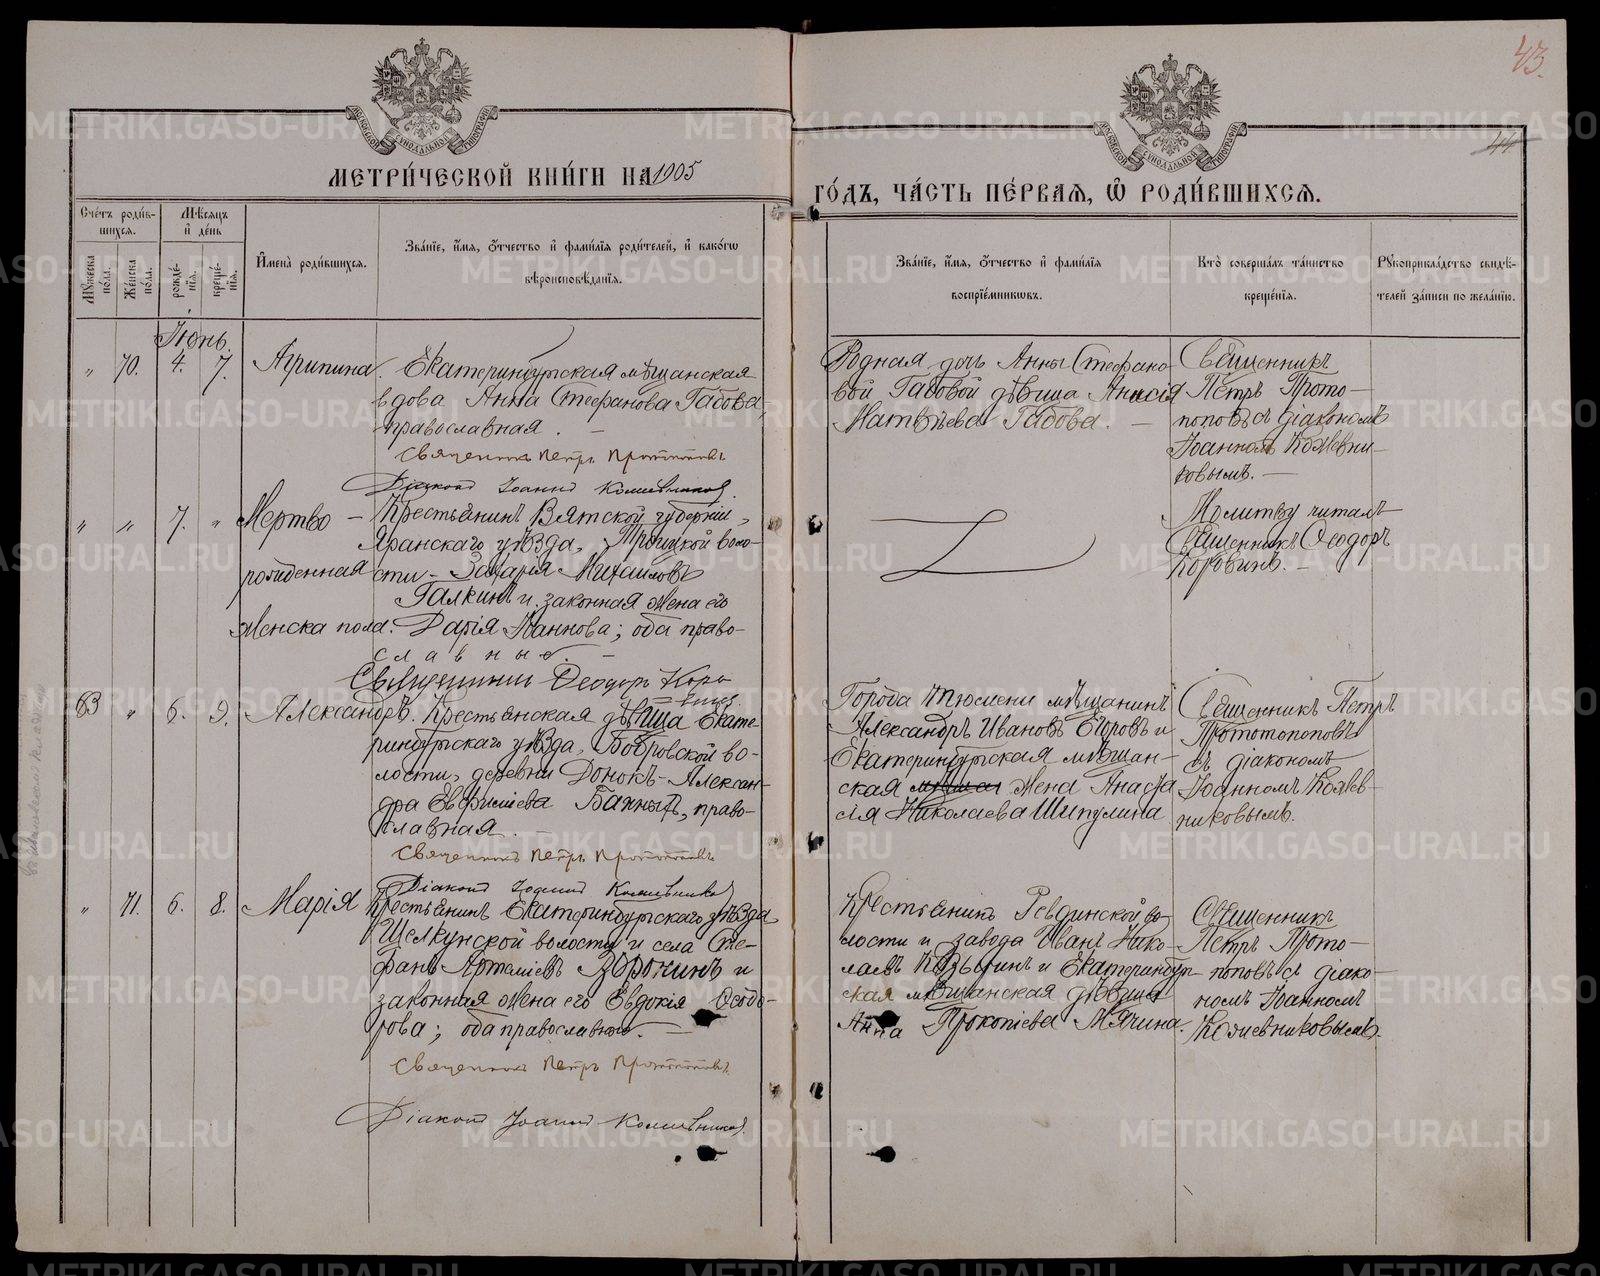 43.
44
МЕТРИ́ЧЕСКОЙ КНИ́ГИ НА 1905
ГО́ДЪ, ЧА́СТЬ ПЕ́РВАЯ, Ѡ РОДИ́ВШИХСЯ.
Сче́тъ роди́вшихся.
Мѣ́сяцъ и҆ де́нь
Мꙋ́жеска по́ла.
Же́нска по́ла.
рожде́нїѧ.
креще́нїѧ.
И҆мена̀ роди́вшихся.
Зва́нїе, и҆́мѧ, ѻ҆́тчество и҆ фами́лїѧ роди́телей, и҆ како́гѡ
вѣроисповѣ́данїѧ.
Зва́нїе, и҆́мѧ, ѻ҆́тчество и҆ фами́лїѧ
воспрїе́мникѡвъ.
Кто̀ соверша́лъ та́инство
креще́нїѧ.
Рꙋкоприкла́дство свидѣ́-
телей за́писи по жела́нїю.
Іюнь.
„ 70. 4. 7. Агрипина. Екатеринбургская мѣщанская
вдова Анна Стефанова Габова,
православная. —
Священникъ Петръ Протопоповъ
Діаконъ Іоаннъ Кожевниковъ.
Родная дочь Анны Стефано-
вой Габовой дѣвица Анисія
Матвѣева Габова. —
Священникъ
Петръ Прото-
поповъ съ діакономъ
Іоанномъ Кожевни-
ковымъ. —
„ „ 7. „ Мертво-
рожденная
женска пола.
Крестьянинъ Вятской губерніи,
Яранскаго уѣзда, Троицкой воло-
сти - Захарія Михаиловъ
Галкинъ и законная жена его
Дарія Іоаннова; оба право-
славные. —
Священникъ Ѳеодоръ Коро-
винъ.
Молитву читалъ
Священникъ Ѳеодоръ
Коровинъ. —
63 „ 6. 9. Александръ. Крестьянская дѣвица Екате-
ринбургскаго уѣзда, Бобровской во-
лости, деревни - Алексан-
дра Евфиміева православная. —
Священникъ Петръ Протопоповъ
Діаконъ Іоаннъ Кожевниковъ
Города Тюмени мѣщанинъ
Александръ Ивановъ Егоровъ и
Екатеринбургская мѣщан-
ская жена Анаста
сія Николаева Шипулина
Священникъ Петръ
Протопоповъ
съ діакономъ
Іоанномъ Кожев-
никовымъ.
„ 71. 6. 8. Марія Крестьянинъ Екатеринбургскаго уѣзда
Щелкунской волости и села Сте-
фанъ Артеміевъ и
законная жена его Евдокія Ѳеодо-
рова; оба православные. —
Священникъ Петръ Протопоповъ.
Діаконъ Іоаннъ Кожевниковъ
Крестьянинъ Ревдинской во-
лости и завода Иванъ Нико-
лаевъ и Екатеринбург-
ская мѣщанская дѣвица
Анна Прокопіева Мячина.
Священникъ
Петръ Прото-
поповъ съ діако-
номъ Іоанномъ
Кожевниковымъ.
METRIKI.GASO-URAL.RU